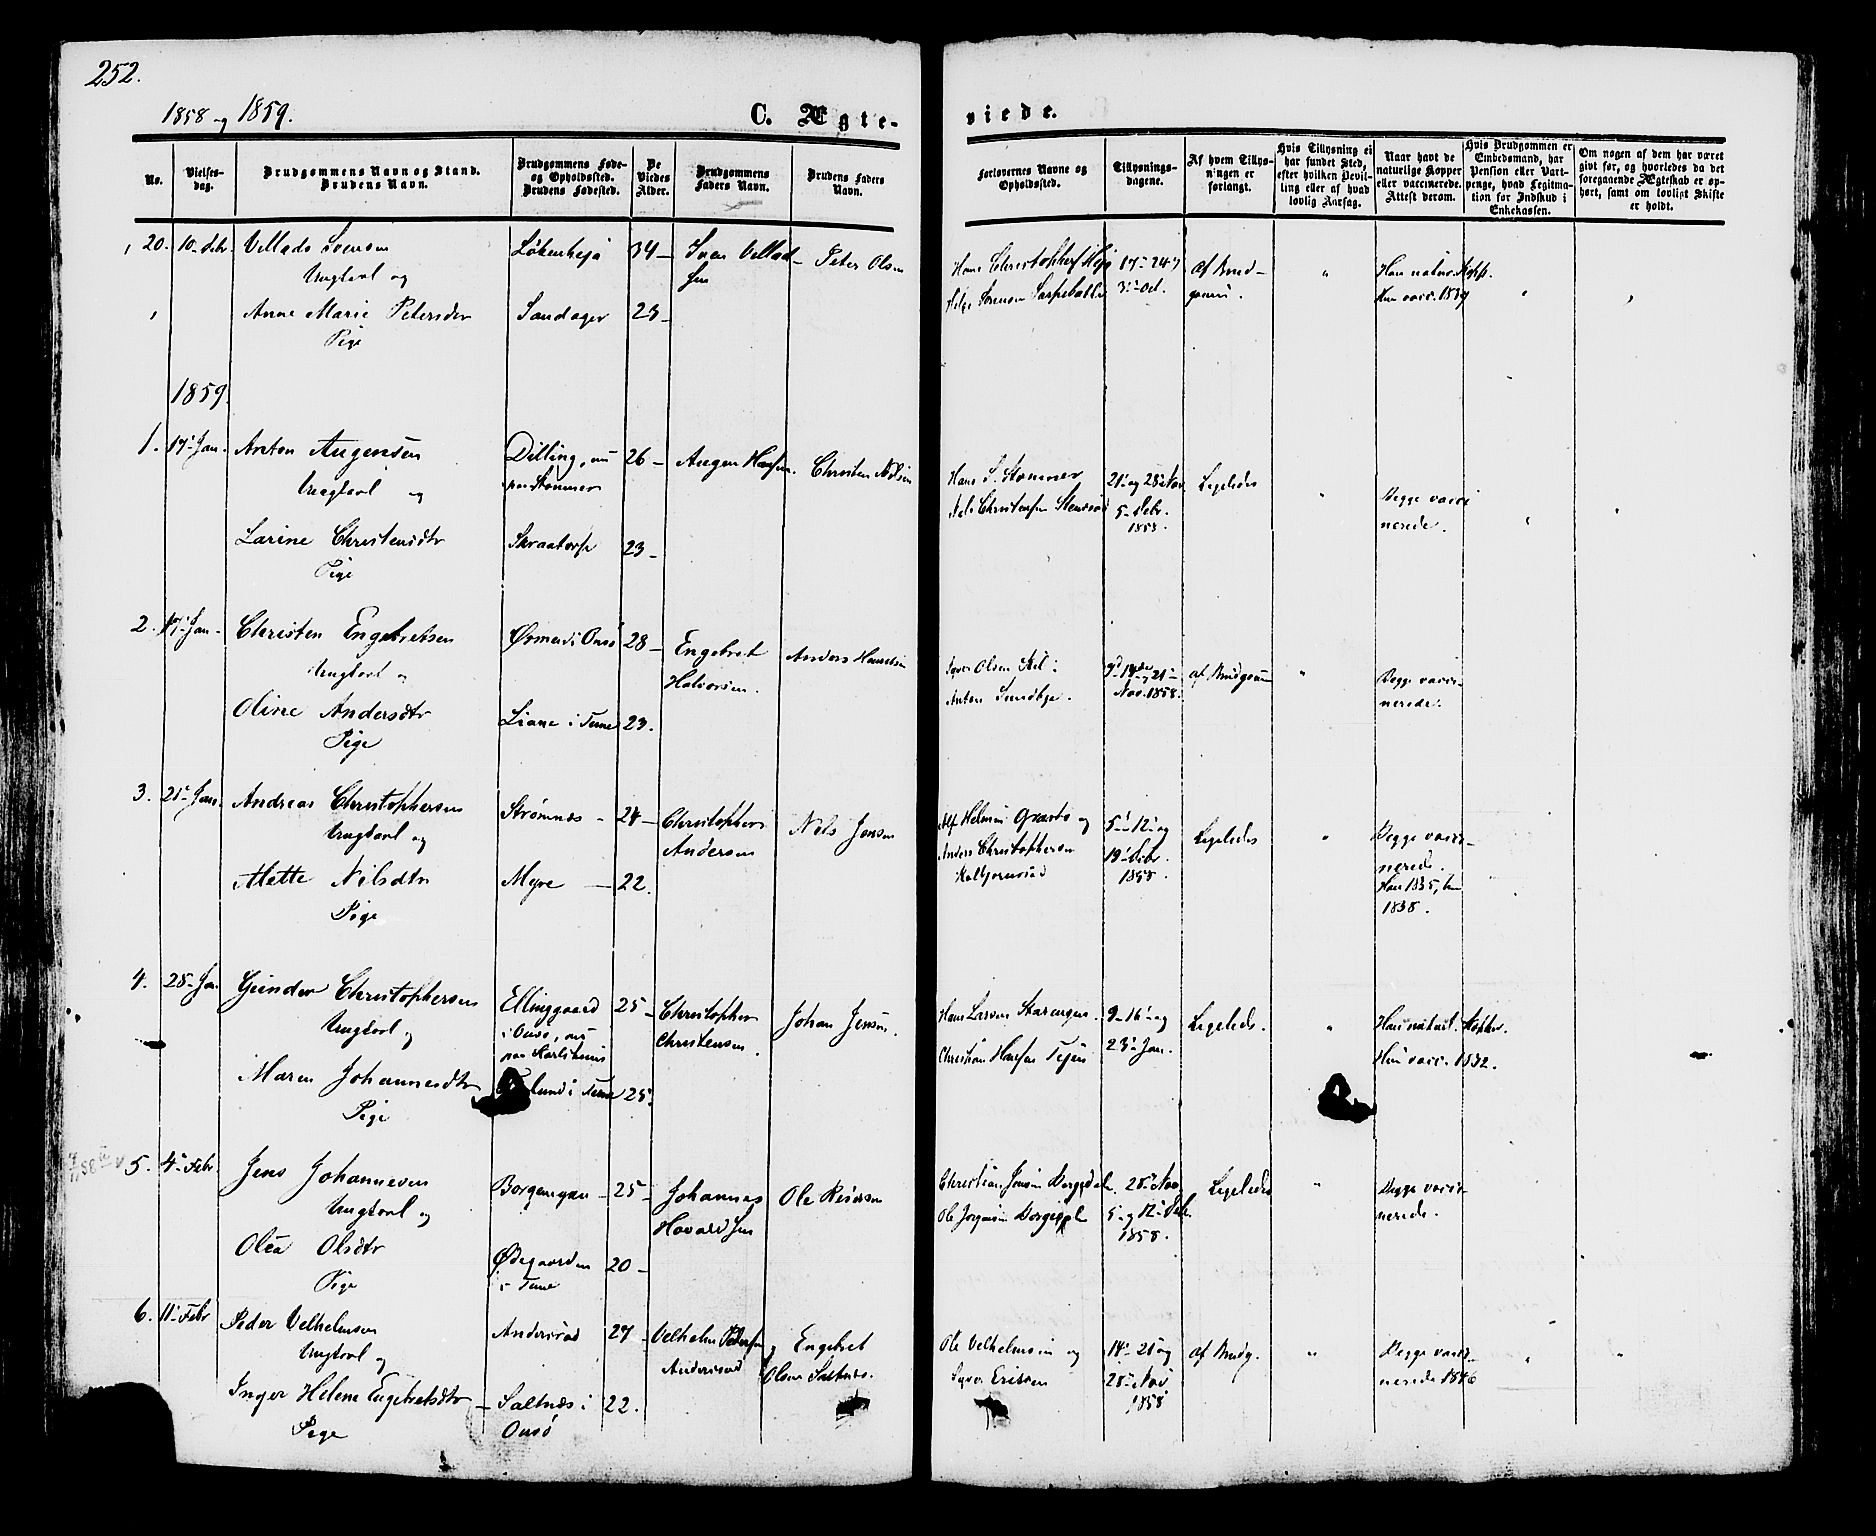 252.
1858 og 1859.
C. Ægte-
viede.
No.
Vielses-
dag.
Brudgommens Navn og Stand.
Brudens Navn.
Brudgommens Føde-
og Opholdssted.
Brudens Fødested.
De
Viedes
Alder.
Brudgommens
Faders Navn.
Brudens Faders
Navn.
Forlovernes Navne og
Opholdssted.
Tillysnings-
dagene.
Af hvem Tillys-
ningen er
forlangt.
Hvis Tillysning ei
har fundet Sted,
efter hvilken Bevil-
ling eller af hvad
lovlig Aarsag.
Naar havt de
naturlige Kopper
eller vaccinerede.
Attest derom.
Hvis Brudgommen er
Embedsmand, har
Pension eller Vart-
penge, hvad Legitima-
tion for Indskud i
Enkekassen.
Om nogen af dem har været
givt før, og hvorledes da det
foregaaende Ægteskab er op-
hørt, samt om lovligt Skifte
er holdt.
20. 10 Debr. Villads Svensen
Ungkarl og
Løkenheja 34 Sven Villad-
sen
Peter Olsen
Hans Christophers
af Brud-
gommen.
Han naturl. Kopp.
Hun vacc. 1839
Anne Marie Petersdtr
Pige
Sandager 23
1859.
1. 17 Jan. Anton Augensen
Ungkarl og
Dilling, nu
26 Augen Hansen. Christen Nilsen
Hans S. Stommer
Nils Christensen
21 og 28 Nov
5 Debr.
1858.
Ligeledes
Begge vacci-
nerede.
Larine Christensdtr
Pige
Skraatorp 23
2. 17 Jan. Christen Engebretsen
Ungkarl og
i Onsø 28 Engebret
Halvorsen.
Anders Hansen
Syver Olsen
Anton
9 14 og 21
Nov. 1858.
af Brudgommen
Begge vacci-
nerede.
Oline Andersdtr
Pige
Liane i Tune 23.
3. 21 Jan. Andreas Christophersen
Ungkarl og
Strømnæs 24 Christopher
Andersen
Nils Jensen
Anders Christophersen
5 12 og
19 Debr.
1858.
Ligeledes
Begge vacci-
nerede.
Han 1835, hun
1838.
Mette Nilsdtr
Pige
Myre 22.
4. 28 Jan. Gunder Christophersen
Ungkarl og
Ellinggaard
i Onsø, nu
25 Christopher
Christensen.
Johan Jensen.
Hans Larsen
Christian Hansen
9 16 og
23 Jan.
Ligeleds.
Han naturl. Kopper.
Hun vacc. 1832.
Maren Johannesdtr
Pige
i Tune 25.
5. 4 Febr. Jens Johannesen
Ungkarl og
Borgengen 25 Johannes
Havardsen
Ole
Christian Jensen
Ole Jørgensen
28 Nov
5 og 12 Debr.
1858.
Ligeledes
Begge vacci-
nerede.
Olea Olsdtr
Pige
Ødegaarden
i Tune
20
6. 11 Febr Peder Velhelmsen
Ungkarl og
Andersrød 27 Velhelm Pedersen
Andersrød
Engebret
Olsen Saltnæs.
Ole Velhelmsen og
Syver Ericsen
14 21 og
28 Nov
1858
af Brudg.
Begge vacci-
nerede 1846
Inger Helene Engebretsdtr
Pige
Saltnæs i
Onsø
22.